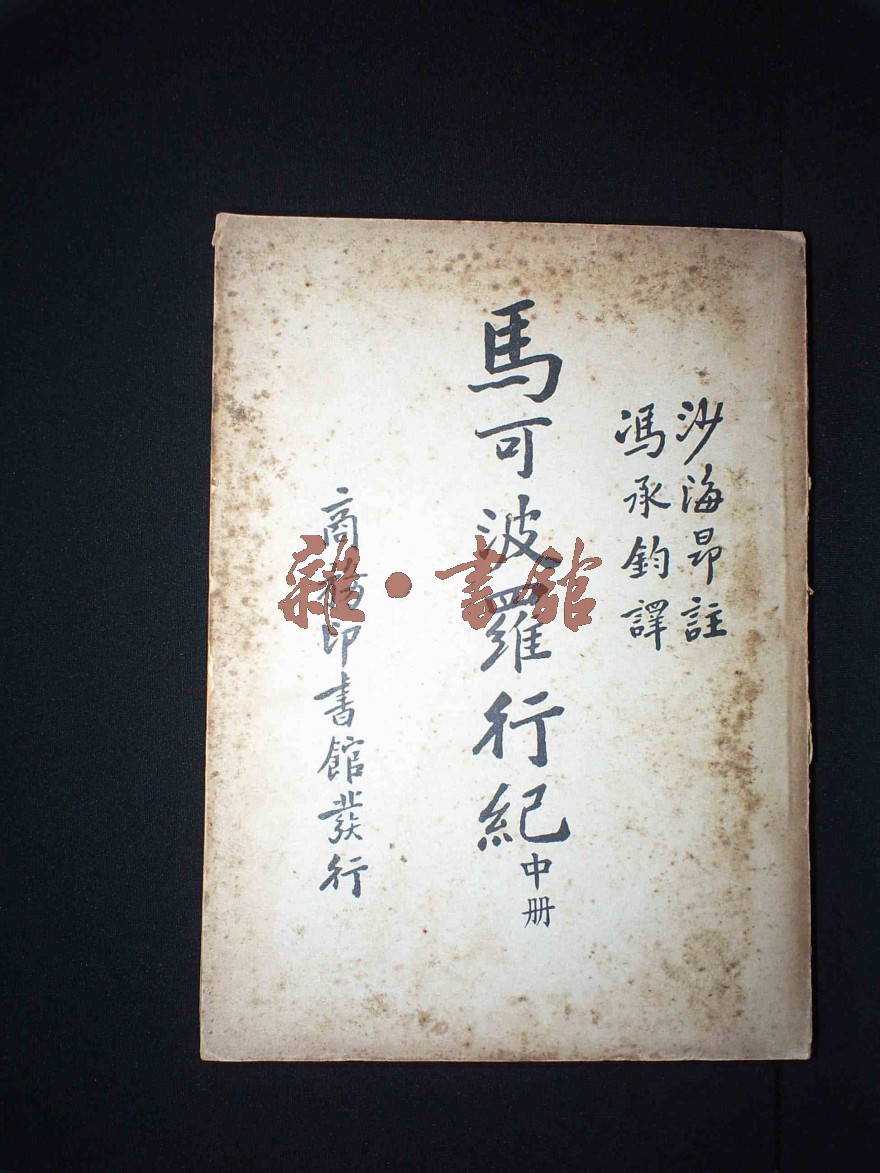 沙海昂註
馮承鈞譯
馬可波羅行紀 中册
商務印書館發行
雜·書館